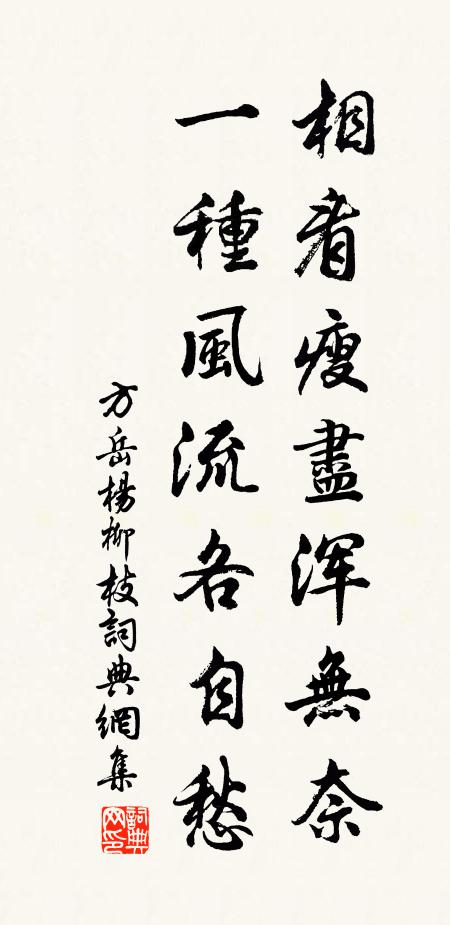 相看瘦盡渾無奈
一種風流各自愁
方岳楊柳枝詞典網集
詞典网印